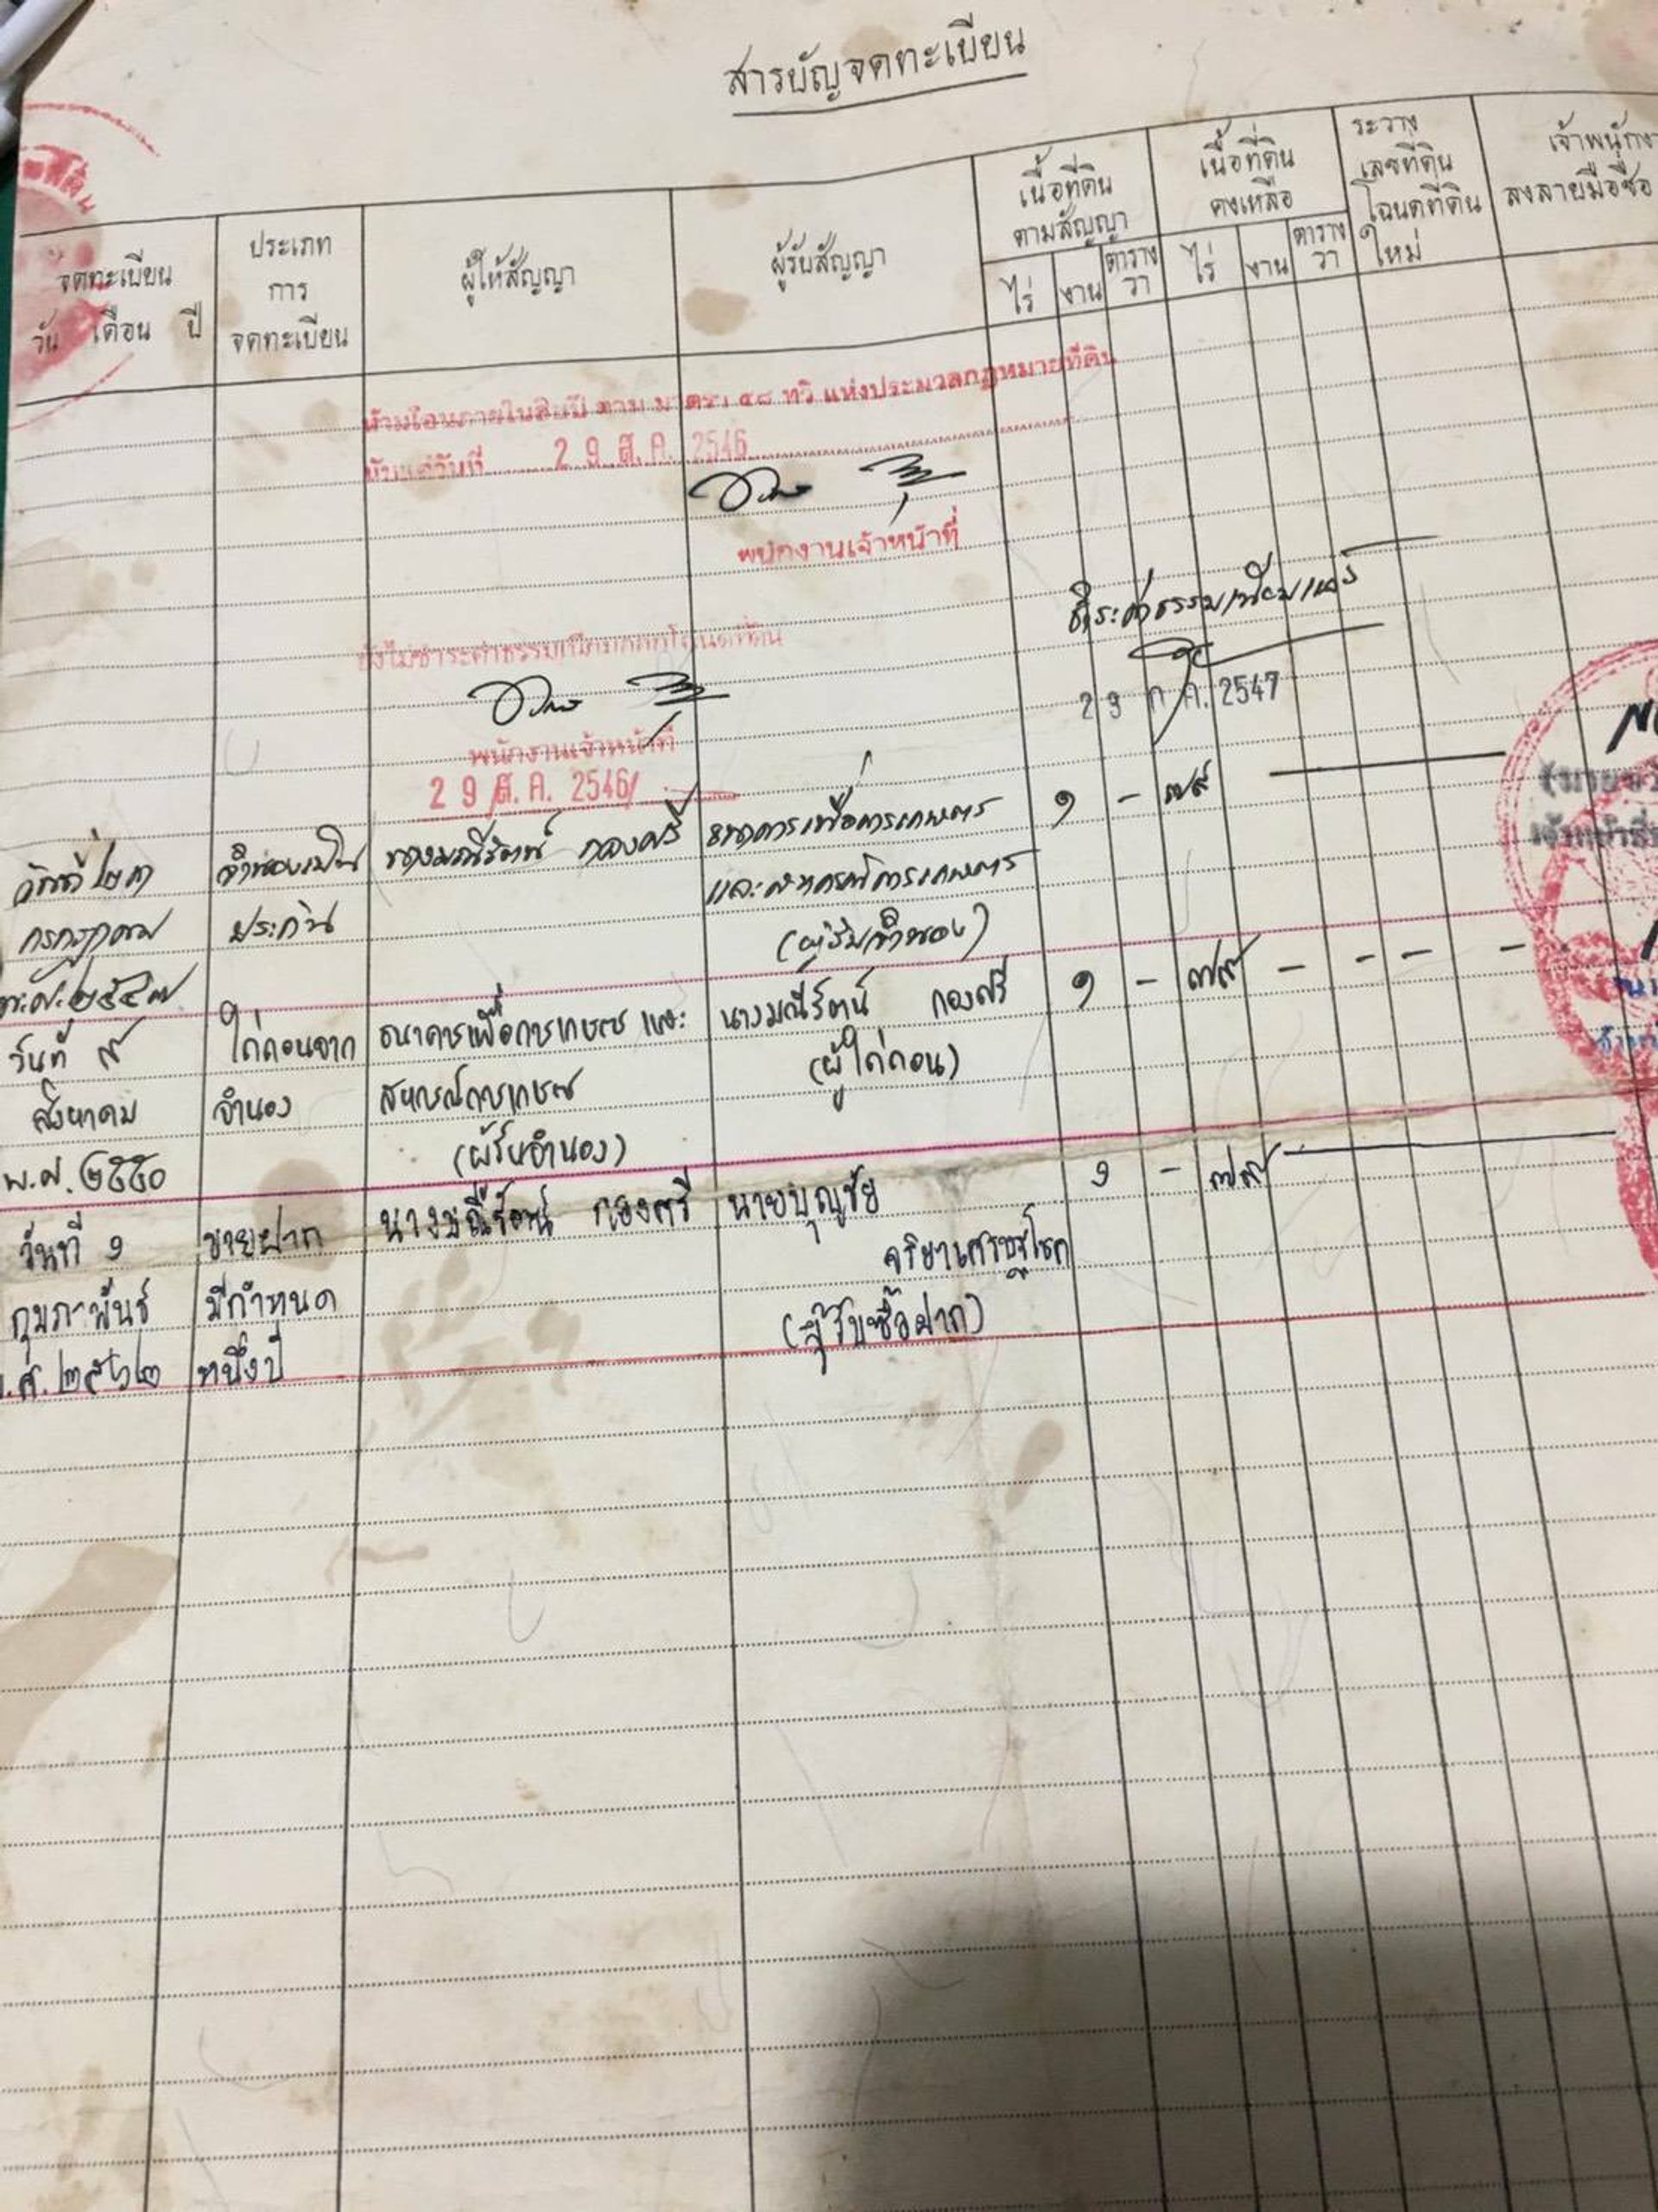 สารบัญจดทะเบียน
จดทะเบียน
วัน เดือน ปี
ประเภท
การ
จดทะเบียน
ผู้ให้สัญญา
ผู้รับสัญญา
เนื้อที่ดิน
ตามสัญญา
ไร่ งาน ตาราง
วา
เนื้อที่ดิน
คงเหลือ
ไร่ งาน ตาราง
วา
ระวาง
เลขที่ดิน
โฉนดที่ดิน
ใหม่
เจ้าพนักงา
ลงลายมือชื่อ
ห้ามโอนภายในสิบปี ตาม มาตรา ๕๘ ทวิ แห่งประมวลกฎหมายที่ดิน
นับแต่วันที่ 29 ส.ค. 2546
พนักงานเจ้าหน้าที่
ชำระค่าธรรมเนียมแล้ว
29 ก.ค. 2547
ยังไม่ชำระค่าธรรมเนียมออกโฉนดที่ดิน
พนักงานเจ้าหน้าที่
29 ส.ค. 2546
วันที่ ๒๓
กรกฎาคม
พ.ศ. ๒๕๔๗
จำนองเป็น
ประกัน
นางมณีรัตน์ กองศรี
ธนาคารเพื่อการเกษตร
และสหกรณ์การเกษตร
(ผู้รับจำนอง)
๑ - ๗๙
วันที่ ๙
สิงหาคม
พ.ศ. ๒๕๕๐
ไถ่ถอนจาก
จำนอง
ธนาคารเพื่อการเกษตร และ
สหกรณ์การเกษตร
(ผู้รับจำนอง)
นางมณีรัตน์ กองศรี
(ผู้ไถ่ถอน)
๑ - ๗๙ - - - -
วันที่ ๑
กุมภาพันธ์
.ศ. ๒๕๖๒
ขายฝาก
มีกำหนด
หนึ่งปี
นางมณีรัตน์ กองศรี
นายบุญชัย
จริยาเศรษฐโชค
(ผู้รับซื้อฝาก)
๑ - ๗๙